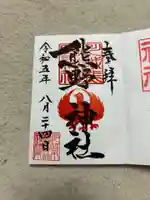 奉拝
熊野神社
令和五年
八月二十四日